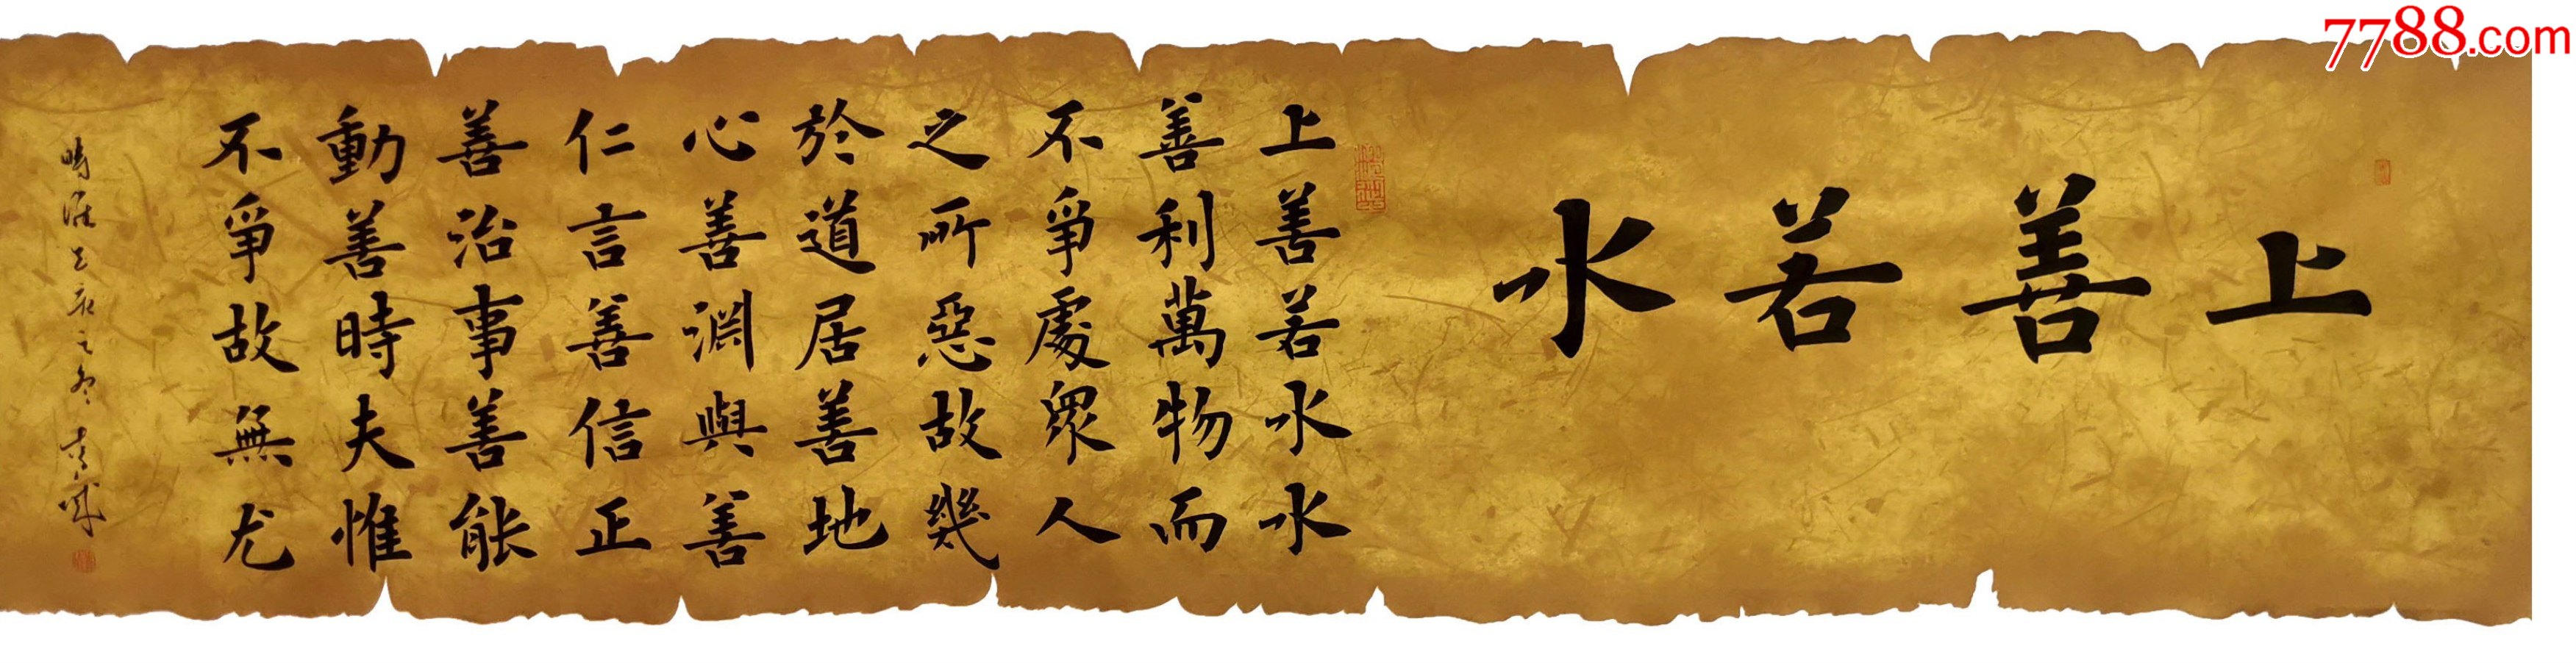 7788.com
上善若水
上善若水水
善利萬物而
不爭處眾人
之所惡故幾
於道居善地
心善淵與善
仁言善信正
善治事善能
動善時夫惟
不爭故無尤
時
之冬